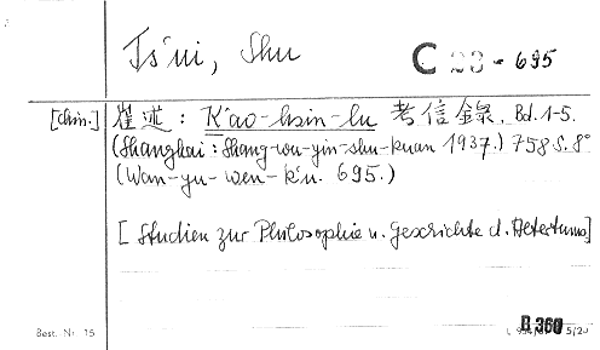 Ts'ui, Shu
C 28 - 695
[chin.] 崔述: K'ao-hsin-lu 考信錄. Bd. 1-5.
(Shanghai: Shang-wu-yin-shu-kuan 1937.) 758 S. 8°
(Wan-yu-wen-k'u. 695.)
[Studien zur Philosophie u. Geschichte d. Altertums]
B 360
Best. Nr 15
5/20